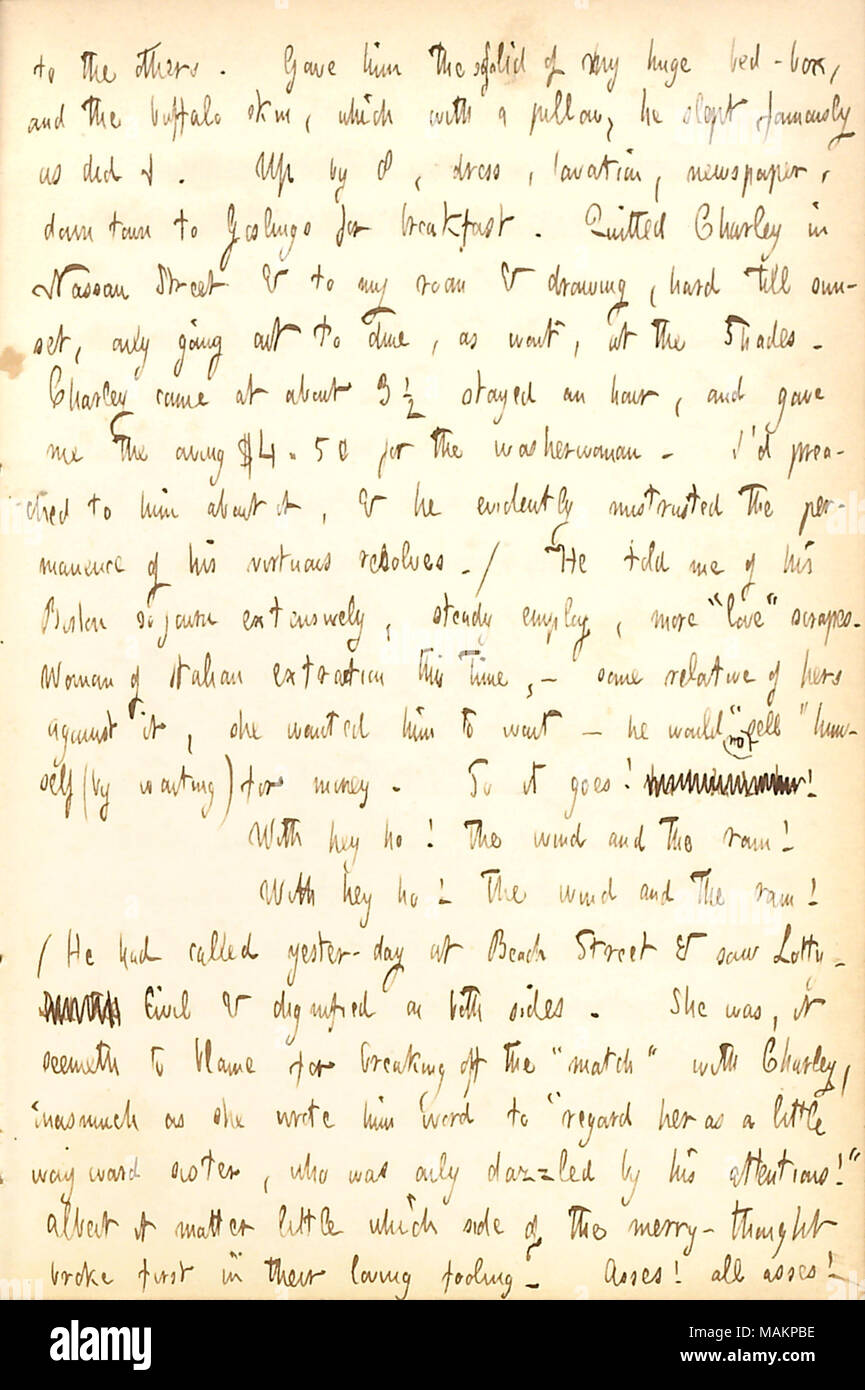 to the others. Gave him the solid of my huge bed-box,
and the buffalo skin, which with a pillow, he slept famously
as did I. Up by 8, dress, lavation, newspaper,
down town to Goslings for breakfast. Quitted Charley in
Nassau Street & to my room & drawing, hard till sun-
set, only going out to dine, as wont, at the Shades.
Charley came at about 3 ½ stayed an hour, and gave
me the owing $4.50 for the washerwoman. I'd prea-
ched to him about it, & he evidently mistrusted the per-
manence of his virtuous resolves. / He told me of his
Boston sojourn extensively, steady employ, more "love" scrapes.
Woman of Italian extraction this time, – some relative of hers
against it, she wanted him to wait – he would "not sell" him-
self (by waiting) for money. So it goes!
With hey ho! the wind and the rain!
With hey ho! the wind and the rain!
/ He had called yester-day at Beach Street & saw Lotty.
Civil & dignified on both sides. She was, it
seemeth to blame for breaking off the "match" with Charley,
inasmuch as she wrote him word to "regard her as a little
wayward sister, who was only dazzled by his attentions!"
Albeit it matter little which side of the merry-thought
broke first in their loving fooling. Asses! all asses!
alamy
Image ID: MAKPBE
www.alamy.com